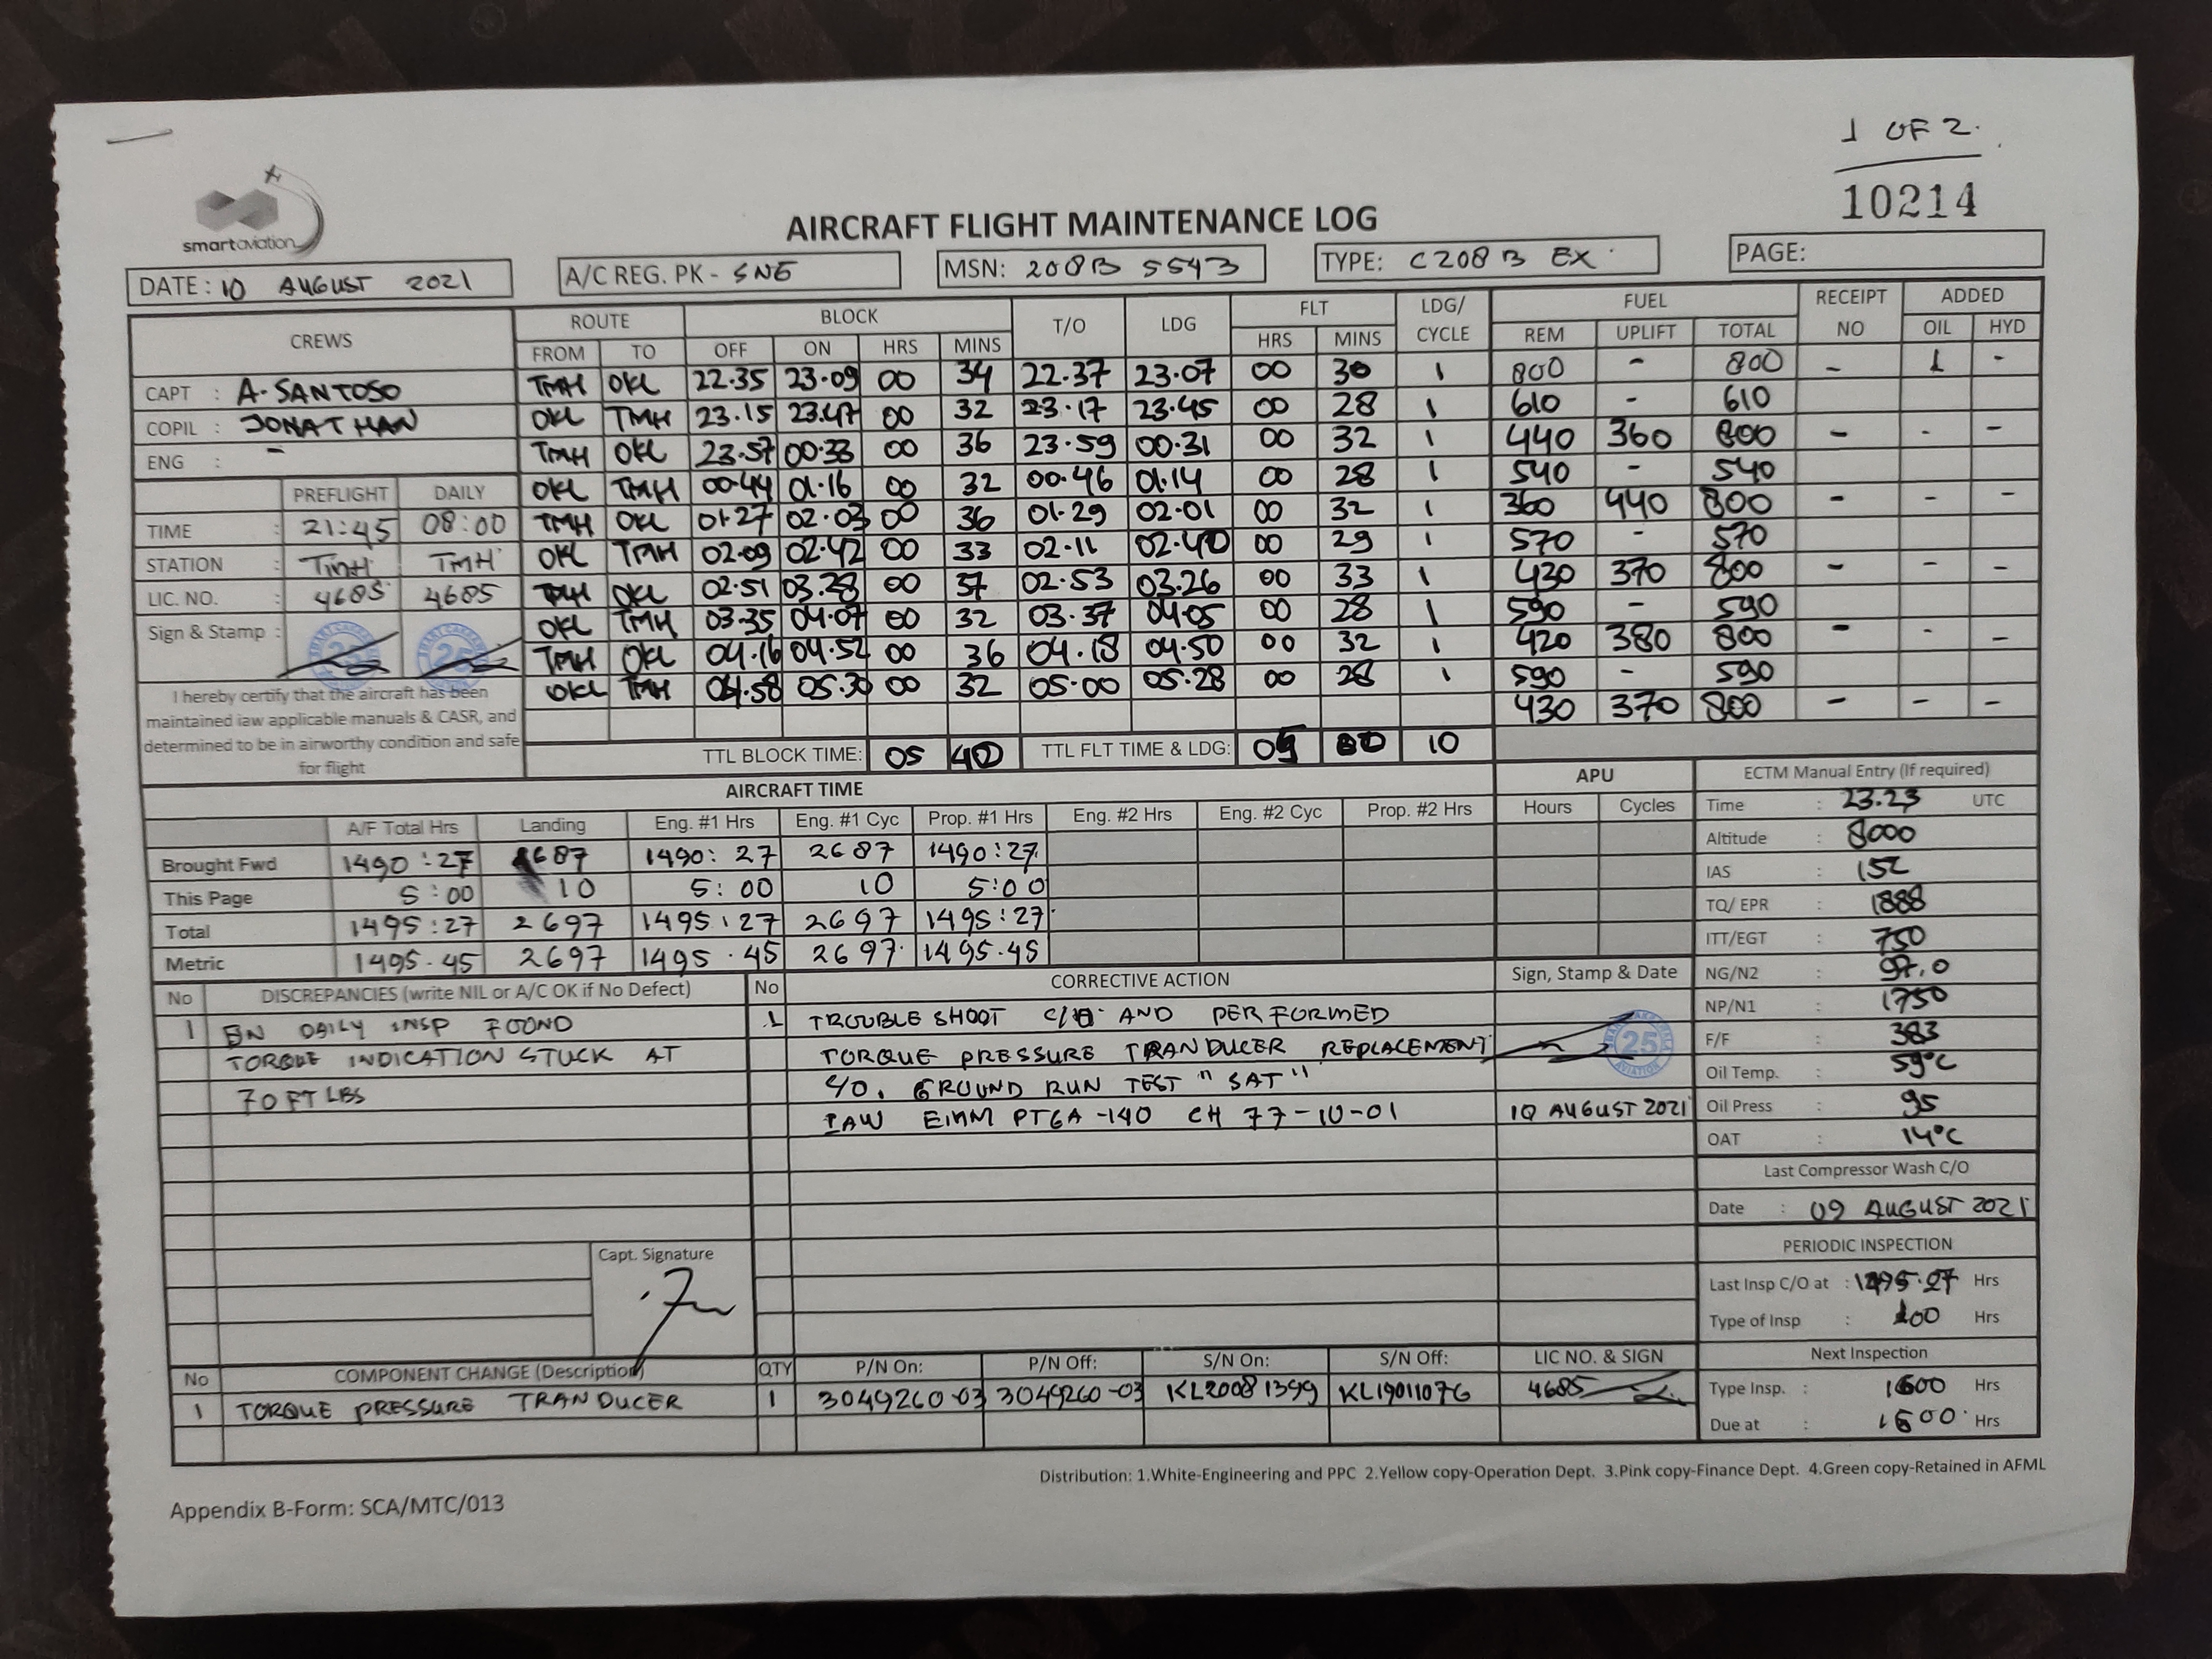 1 OF 2.
10214
smartaviation
AIRCRAFT FLIGHT MAINTENANCE LOG
DATE: 10 AUGUST 2021 A/C REG. PK - SNE MSN: 208B 5543 TYPE: C208 B EX PAGE:
CREWS ROUTE BLOCK T/O LDG FLT LDG/ CYCLE FUEL RECEIPT NO ADDED
FROM TO OFF ON HRS MINS HRS MINS REM UPLIFT TOTAL OIL HYD
CAPT : A. SANTOSO
COPIL : JONATHAN
ENG : -
TMH OKL 22.35 23.09 00 34 22.37 23.07 00 30 1 800 - 800 - 1 -
OKL TMH 23.15 23.47 00 32 23.17 23.45 00 28 1 610 - 610
TMH OKL 23.57 00.33 00 36 23.59 00.31 00 32 1 440 360 800 - - -
OKL TMH 00.44 01.16 00 32 00.46 01.14 00 28 1 540 - 540
TMH OKL 01.27 02.03 00 36 01.29 02.01 00 32 1 360 440 800 - - -
OKL TMH 02.09 02.42 00 33 02.11 02.40 00 29 1 570 - 570
TMH OKL 02.51 03.28 00 37 02.53 03.26 00 33 1 430 370 800 - - -
OKL TMH 03.35 04.07 00 32 03.37 04.05 00 28 1 590 - 590
TMH OKL 04.16 04.52 00 36 04.18 04.50 00 32 1 420 380 800 - - -
OKL TMH 04.58 05.30 00 32 05.00 05.28 00 28 1 590 - 590
430 370 800 - - -
PREFLIGHT DAILY
TIME : 21:45 08:00
STATION : TMH TMH
LIC. NO. : 4685 4685
Sign & Stamp : 25 25
I hereby certify that the aircraft has been
maintained iaw applicable manuals & CASR, and
determined to be in airworthy condition and safe
for flight
TTL BLOCK TIME: 05 40 TTL FLT TIME & LDG: 05 00 10
AIRCRAFT TIME APU
A/F Total Hrs Landing Eng. #1 Hrs Eng. #1 Cyc Prop. #1 Hrs Eng. #2 Hrs Eng. #2 Cyc Prop. #2 Hrs Hours Cycles
Brought Fwd 1490:27 2687 1490:27 2687 1490:27
This Page 5:00 10 5:00 10 5:00
Total 1495:27 2697 1495:27 2697 1495:27
Metric 1495.45 2697 1495.45 2697 1495.45
ECTM Manual Entry (If required)
Time : 23.23 UTC
Altitude : 8000
IAS : 152
TQ/ EPR : 1888
ITT/EGT : 750
NG/N2 : 97.0
NP/N1 : 1750
F/F : 383
Oil Temp. : 59°C
Oil Press : 95
OAT : 14°C
Last Compressor Wash C/O
Date : 09 AUGUST 2021
PERIODIC INSPECTION
Last Insp C/O at : 1495.27 Hrs
Type of Insp : 100 Hrs
Next Inspection
Type Insp. : 1600 Hrs
Due at : 1600 Hrs
No DISCREPANCIES (write NIL or A/C OK if No Defect) No CORRECTIVE ACTION Sign, Stamp & Date
1 ON DAILY INSP FOOND
TORQUE INDICATION STUCK AT
70 FT LBS
1 TROUBLE SHOOT C/O AND PERFORMED
TORQUE PRESSURE TRANDUCER REPLACEMENT
C/O. GROUND RUN TEST "SAT"
IAW EMM PT6A-140 CH 77-10-01
25
AVIATION
10 AUGUST 2021
Capt. Signature
No COMPONENT CHANGE (Description) QTY P/N On: P/N Off: S/N On: S/N Off: LIC NO. & SIGN
1 TORQUE PRESSURE TRANDUCER 1 3049260-03 3049260-03 KL20081399 KL19011076 4685
Distribution: 1.White-Engineering and PPC 2.Yellow copy-Operation Dept. 3.Pink copy-Finance Dept. 4.Green copy-Retained in AFML
Appendix B-Form: SCA/MTC/013